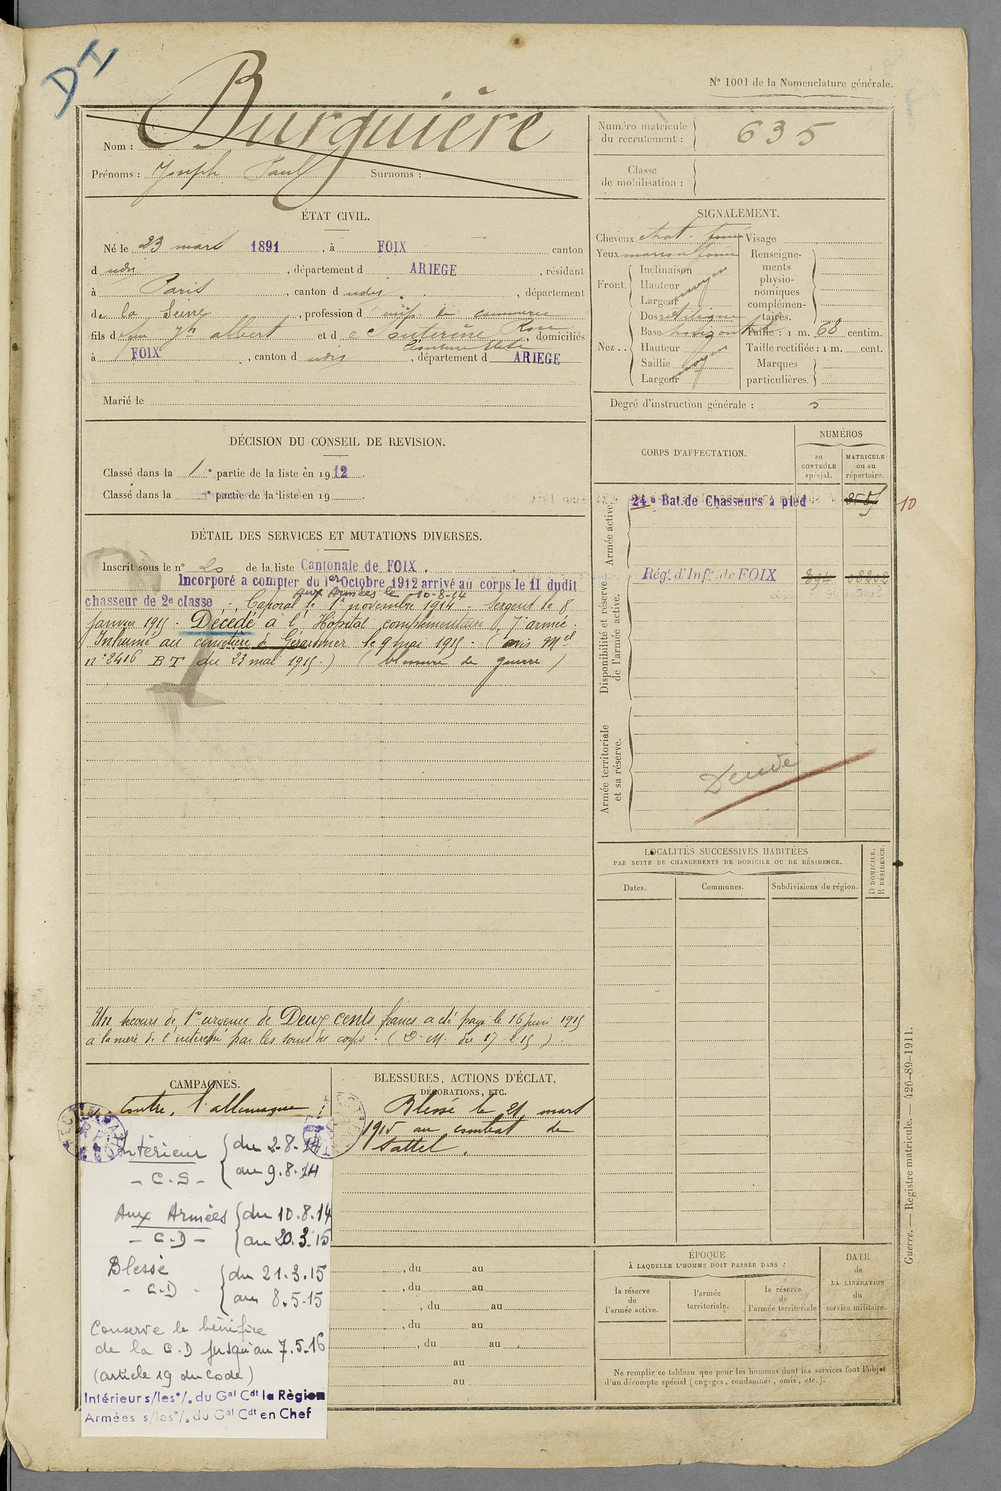 DI
N° 1001 de la Nomenclature générale.
Nom : Burguière
Prénoms : Joseph Paul Surnoms :
Numéro matricule du recrutement : 635
Classe de mobilisation :
ÉTAT CIVIL.
Né le 23 mars 1891, à FOIX canton
d udis, département d ARIEGE, résidant
à Paris, canton d udis, département
de la Seine, profession d emp. de commerce
fils d feu Jh albert et d domiciliés
à FOIX, canton d udis, département d ARIEGE
Marié le
SIGNALEMENT.
Cheveux chat. foncé Visage
Yeux marron foncé Renseigne-
ments
physio-
nomiques
complémen-
taires.
Front. Inclinaison
Hauteur moyen
Largeur
Nez.. Dos rectiligne
Base horizontal
Hauteur
Saillie moyen
Largeur
Taille : 1 m. 68 centim.
Taille rectifiée : 1 m. cent.
Marques
particulières.
Degré d'instruction générale : 5
DÉCISION DU CONSEIL DE REVISION.
Classé dans la 1re partie de la liste en 1912.
Classé dans la e partie de la liste en 19
CORPS D'AFFECTATION.
NUMÉROS
au
CONTRÔLE
spécial.
MATRICULE
ou au
répertoire.
Armée active.
24e Bat. de Chasseurs à pied
10
Disponibilité et réserve
de l'armée active.
Régt d'Infie de FOIX
Armée territoriale
et sa réserve.
Décédé
DÉTAIL DES SERVICES ET MUTATIONS DIVERSES.
Inscrit sous le n° 20 de la liste Cantonale de FOIX.
Incorporé a compter du 1er Octobre 1912 arrivé au corps le 11 dudit
aux Armées le 10-8-14
chasseur de 2e classe. Caporal le 1er novembre 1914 - Sergent le 8
janvier 1915. Décédé à l'Hopital complémentaire 7e armée.
Inhumé au cimetière de Gérardmer le 9 mai 1915. (avis Mel
n° 2416 B T du 23 mai 1915.) (blessure de guerre)
Un secours de 1re urgence de Deux cents francs a été payé le 16 juin 1915
a la mère de l'intéressé par les soins du corps. (D. M. du 17 2 15).
LOCALITÉS SUCCESSIVES HABITÉES
PAR SUITE DE CHANGEMENTS DE DOMICILE OU DE RÉSIDENCE.
Dates. Communes. Subdivisions de région.
D DOMICILE.
R RÉSIDENCE.
CAMPAGNES.
Contre l'allemagne :
Intérieur du 2-8-14
- C.S - au 9.8.14
Aux Armées du 10.8.14
- C.D - au 20.3.15
Blessé du 21.3.15
- C.D - au 8.5.15
Conserve le bénéfice
de la C.D jusqu'au 7.5.16
(article 19 du Code)
Intérieur s/les o/. du Gal Cdt la Région
Armées s/les o/. du Gal Cdt en Chef
BLESSURES, ACTIONS D'ÉCLAT,
DÉCORATIONS, ETC.
Blessé le 21 mars
1915 au combat de
, du au
, du au
, du au
, du au
, du au
au
au
EPOQUE
À LAQUELLE L'HOMME DOIT PASSER DANS :
la réserve
de
l'armée active.
l'armée
territoriale.
la réserve
de
l'armée territoriale
DATE
de
LA LIBÉRATION
du
service militaire.
Ne remplir ce tableau que pour les hommes dont les services font l'objet
d'un décompte spécial (engagés, condamnés, omis, etc.).
Guerre. — Registre matricule. — 426-89-1911.